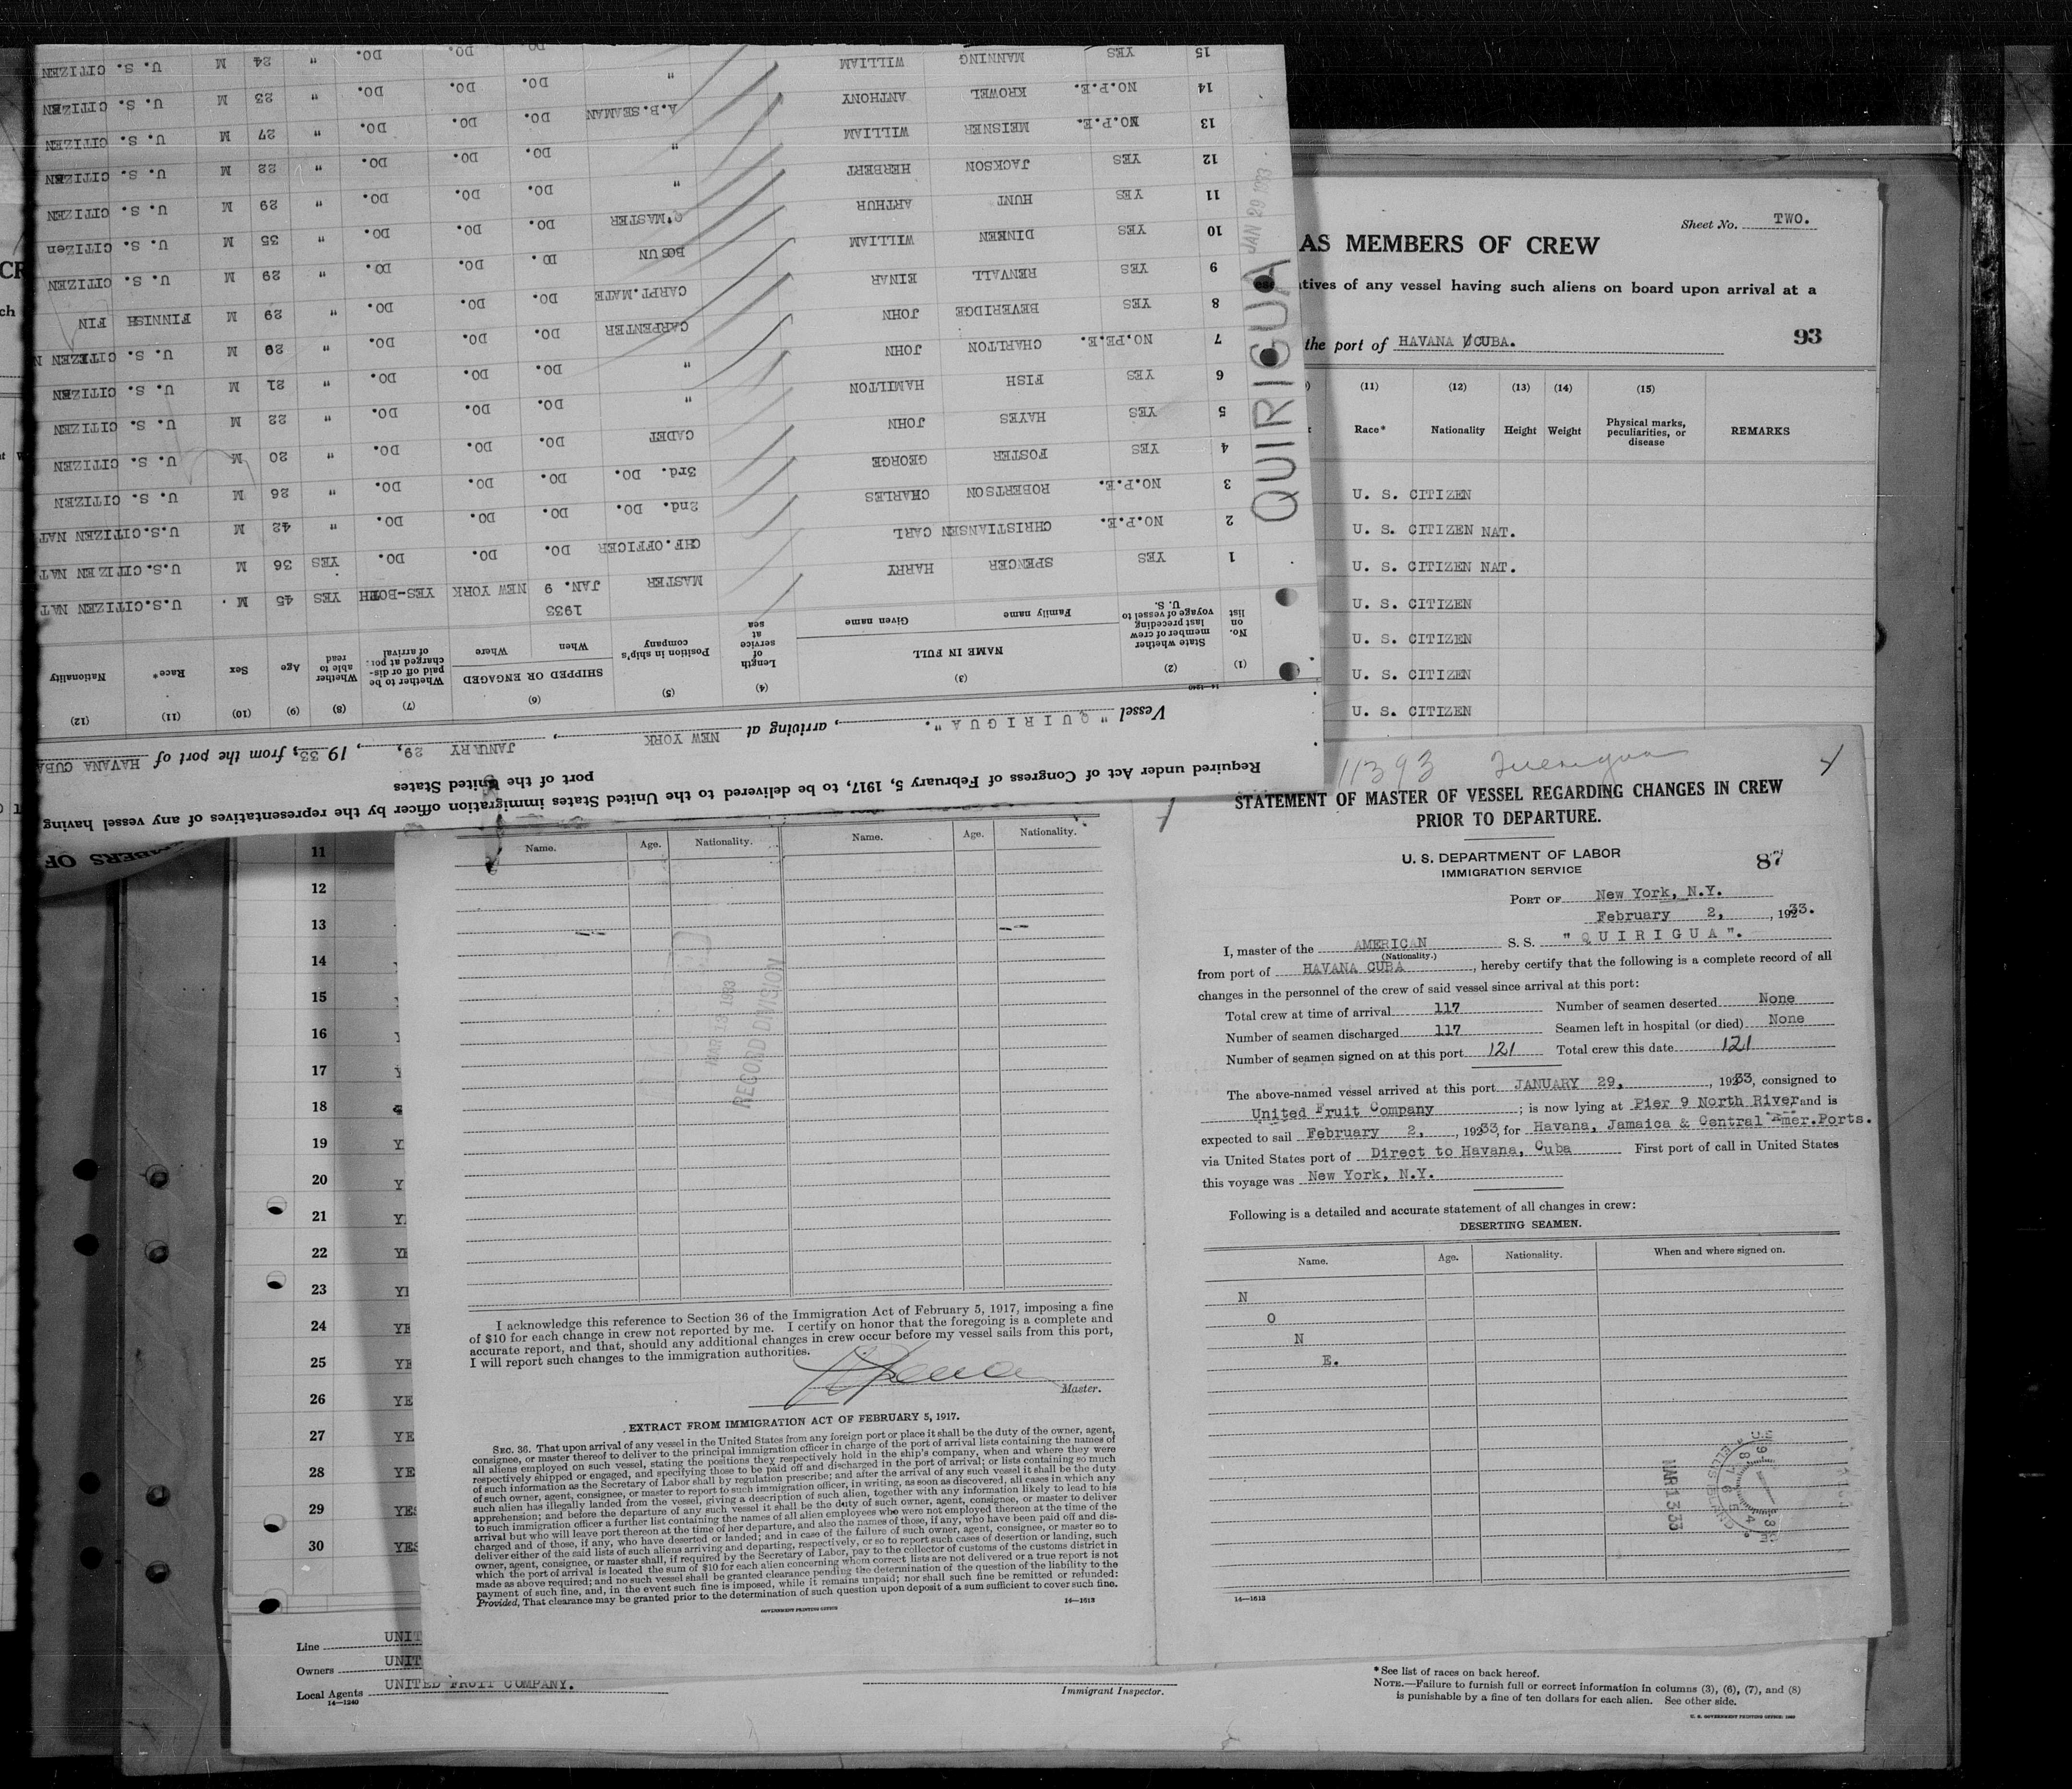 MEMBERS OF
Required under Act of Congress of February 5, 1917, to be delivered to the United States immigration officer by the representatives of any vessel having
port of the United States
Vessel "QUIRIGUA". , arriving at NEW YORK , JANUARY 29, , 1933, from the port of HAVANA CUBA
14-1240
(1) (2) (3) (4) (5) (6) (7) (8) (9) (10) (11) (12)
No. on list State whether member of crew last preceding voyage of vessel to U. S. NAME IN FULL Family name Given name Length of service at sea Position in ship's company SHIPPED OR ENGAGED When Where Whether to be paid off or discharged at port of arrival Whether able to read Age Sex Race* Nationality
1933
1 YES SPENCER HARRY MASTER JAN. 9 NEW YORK YES-BOTH YES 45 M. U.S.CITIZEN NAT
2 NO.P.E. CHRISTIANSEN CARL CHF.OFFICER DO. DO. DO. YES 36 M U.S.CITIZEN NAT
3 NO.P.E. ROBERTSON CHARLES 2nd. DO. DO. DO. DO. " 42 M U.S.CITIZEN NAT
4 YES FOSTER GEORGE 3rd. DO. DO. DO. DO. " 26 M U. S. CITIZEN
5 YES HAYES JOHN CADET DO. DO. DO. " 20 M U. S. CITIZEN
6 YES FISH HAMILTON " DO. DO. DO. " 22 M U. S. CITIZEN
7 NO.PE.E. CHARLTON JOHN " DO. DO. DO. " 21 M U. S. CITIZEN
8 YES BEVERIDGE JOHN CARPENTER DO. DO. DO. " 29 M U. S. CITIZEN N
9 YES RENVALL EINAR CARPT.MATE DO. DO. DO. " 29 M FINNISH FIN
10 YES DINKEN WILLIAM BOSUN DO. DO. DO. " 29 M U. S. CITIZEN
11 YES HUNT ARTHUR Q'MASTER DO. DO. DO. " 35 M U. S. CITIZEN
12 YES JACKSON HERBERT " DO. DO. DO. " 29 M U. S. CITIZEN
13 NO.P.E. MEISNER WILLIAM " DO. DO. DO. " 22 M U. S. CITIZEN
14 NO.P.E. KROWEL ANTHONY A.B.SEAMAN DO. DO. DO. " 27 M U. S. CITIZEN
15 YES MANNING WILLIAM " DO. DO. DO. " 23 M U. S. CITIZEN
DO. DO. DO. " 24 M U. S. CITIZEN
QUIRIGUA
JAN 29 1933
Sheet No. TWO.
AS MEMBERS OF CREW
tives of any vessel having such aliens on board upon arrival at a
the port of HAVANA CUBA.
93
(11) (12) (13) (14) (15)
Race* Nationality Height Weight Physical marks, peculiarities, or disease REMARKS
U. S. CITIZEN
U. S. CITIZEN NAT.
U. S. CITIZEN NAT.
U. S. CITIZEN
U. S. CITIZEN
U. S. CITIZEN
U. S. CITIZEN
11
12
13
14
15
16
17
18
19 Y
20 Y
21 Y
22 YE
23 YE
24 YE
25 YE
26 YE
27 YE
28 YE
29 YES
30 YES
Line UNIT
Owners UNIT
Local Agents UNITED FRUIT COMPANY.
14-1240
Immigrant Inspector.
*See list of races on back hereof.
NOTE.—Failure to furnish full or correct information in columns (3), (6), (7), and (8)
is punishable by a fine of ten dollars for each alien. See other side.
U. S. GOVERNMENT PRINTING OFFICE
Name. Age. Nationality. Name. Age. Nationality.
MAR 15 1933
RECORD DIVISION
I acknowledge this reference to Section 36 of the Immigration Act of February 5, 1917, imposing a fine
of $10 for each change in crew not reported by me. I certify on honor that the foregoing is a complete and
accurate report, and that, should any additional changes in crew occur before my vessel sails from this port,
I will report such changes to the immigration authorities.
Master.
EXTRACT FROM IMMIGRATION ACT OF FEBRUARY 5, 1917.
SEC. 36. That upon arrival of any vessel in the United States from any foreign port or place it shall be the duty of the owner, agent,
consignee, or master thereof to deliver to the principal immigration officer in charge of the port of arrival lists containing the names of
all aliens employed on such vessel, stating the positions they respectively hold in the ship's company, when and where they were
respectively shipped or engaged, and specifying those to be paid off and discharged in the port of arrival; or lists containing so much
of such information as the Secretary of Labor shall by regulation prescribe; and after the arrival of any such vessel it shall be the duty
of such owner, agent, consignee, or master to report to such immigration officer, in writing, as soon as discovered, all cases in which any
such alien has illegally landed from the vessel, giving a description of such alien, together with any information likely to lead to his
apprehension; and before the departure of any such vessel it shall be the duty of such owner, agent, consignee, or master to deliver
to such immigration officer a further list containing the names of all alien employees who were not employed thereon at the time of the
arrival but who will leave port thereon at the time of her departure, and also the names of those, if any, who have been paid off and dis-
charged and of those, if any, who have deserted or landed; and in case of the failure of such owner, agent, consignee, or master so to
deliver either of the said lists of such aliens arriving and departing, respectively, or so to report such cases of desertion or landing, such
owner, agent, consignee, or master shall, if required by the Secretary of Labor, pay to the collector of customs of the customs district in
which the port of arrival is located the sum of $10 for each alien concerning whom correct lists are not delivered or a true report is not
made as above required; and no such vessel shall be granted clearance pending the determination of the question of the liability to the
payment of such fine, and, in the event such fine is imposed, while it remains unpaid; nor shall such fine be remitted or refunded:
Provided, That clearance may be granted prior to the determination of such question upon deposit of a sum sufficient to cover such fine.
GOVERNMENT PRINTING OFFICE
14-1613
11393
STATEMENT OF MASTER OF VESSEL REGARDING CHANGES IN CREW
PRIOR TO DEPARTURE.
U. S. DEPARTMENT OF LABOR
IMMIGRATION SERVICE
87
PORT OF New York, N.Y.
February 2, , 1933.
I, master of the AMERICAN S. S. "QUIRIGUA".
(Nationality.)
from port of HAVANA CUBA , hereby certify that the following is a complete record of all
changes in the personnel of the crew of said vessel since arrival at this port:
Total crew at time of arrival 117 Number of seamen deserted None
Number of seamen discharged 117 Seamen left in hospital (or died) None
Number of seamen signed on at this port 121 Total crew this date 121
The above-named vessel arrived at this port JANUARY 29, , 1933, consigned to
United Fruit Company ; is now lying at Pier 9 North River and is
expected to sail February 2, , 1933, for Havana, Jamaica & Central Amer.Ports.
via United States port of Direct to Havana, Cuba First port of call in United States
this voyage was New York, N.Y.
Following is a detailed and accurate statement of all changes in crew:
DESERTING SEAMEN.
Name. Age. Nationality. When and where signed on.
N
O
N
E.
14-1613